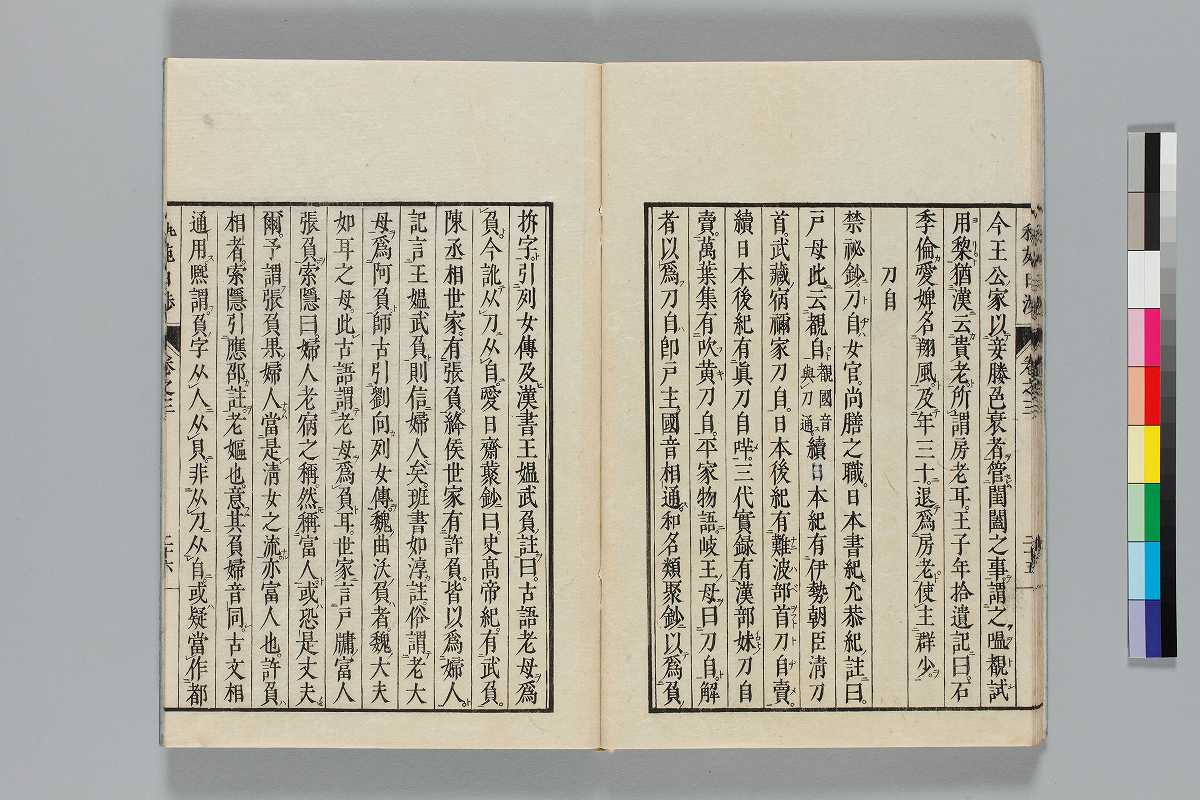 今王公家以妾媵邑衰者管閨闥之事謂之嗢覩試
用黎猶漢云貴老所謂房老耳王子年拾遺記曰石
季倫愛婢名翔風及年三十退爲房老使主群少
刀自
禁祕鈔刀自女官尚膳之職日本書紀允恭紀註曰
戸母此云覩自覩國音與刀通續日本紀有伊勢朝臣淸刀
首武藏宿禰家刀自日本後紀有難波部首刀自賣
續日本後紀有眞刀自咩三代實録有漢部妹刀自
賣萬葉集有吹黄刀自平家物語岐王母曰刀自解
者以爲刀自卽戸主國音相通和名類聚鈔以爲負
拆字引列女傳及漢書王媼武負註曰古語老母爲
負今訛从刀从自愛日齋藂鈔曰史高帝紀有武負
陳丞相世家有張負絳侯世家有許負皆以爲婦人
記言王媼武負則信婦人矣班書如淳註俗謂老大
母爲阿負師古引劉向列女傳魏曲沃負者魏大夫
如耳之母此古語謂老母爲負耳世家言戸牖富人
張負索隱曰婦人老宿之稱然稱富人或恐是丈夫
爾予謂張負果婦人當是淸女之流亦富人也許負
相者索隱引應邵註老嫗也意其負婦音同古文相
通用熙謂負字从人从貝非从刀从自或疑當作都
卷之三
二十五
卷之三
二十六